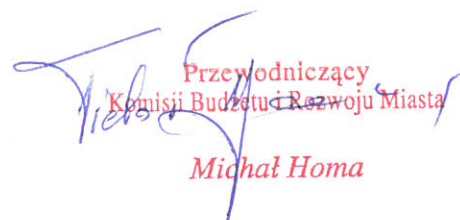 Przewodniczący
Komisji Budżetu i Rozwoju Miasta
Michał Homa